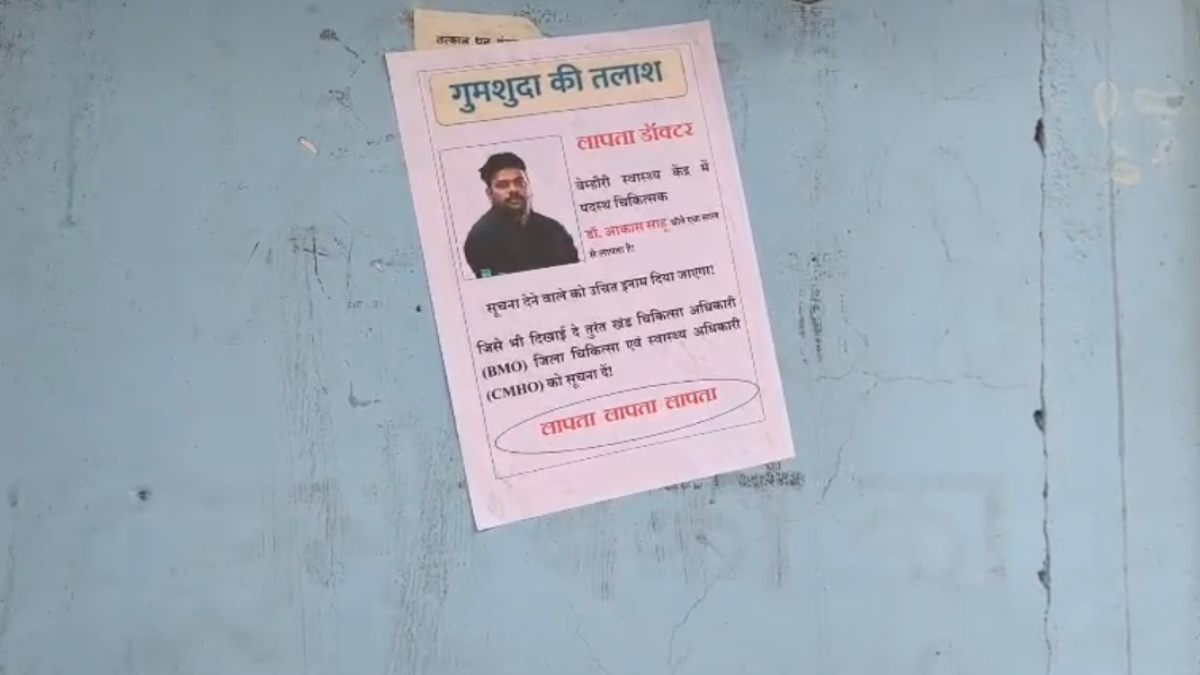 तत्काल
गुमशुदा की तलाश
लापता डॉक्टर
बेम्हौरी स्वास्थ्य केंद्र में
पदस्थ चिकित्सक
डॉ. आकास साहू बीते एक साल
से लापता है!
सूचना देने वाले को उचित इनाम दिया जाएगा!
जिसे भी दिखाई दे तुरंत खंड चिकित्सा अधिकारी
(BMO) जिला चिकित्सा एवं स्वास्थ्य अधिकारी
(CMHO) को सूचना दें!
लापता लापता लापता